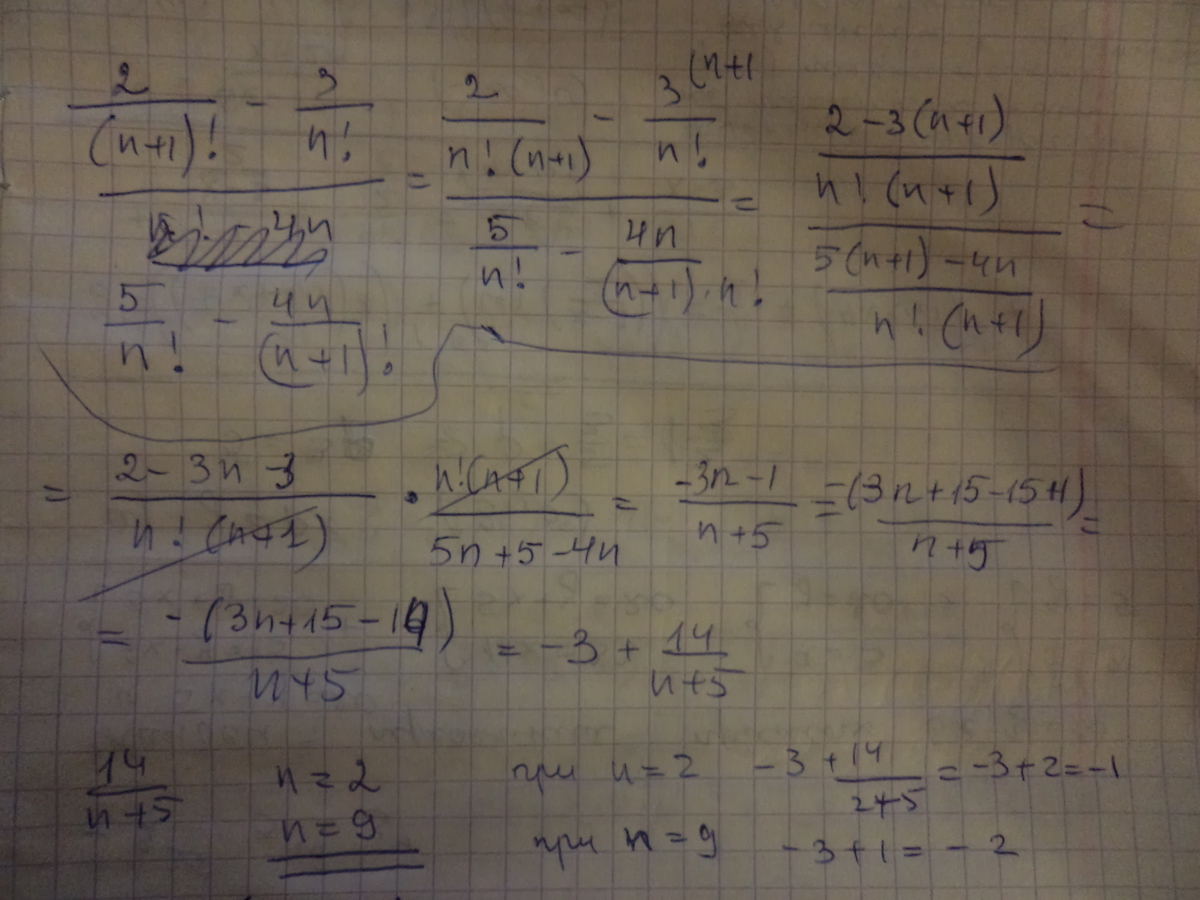 2/(n+1)! - 3/n! = 2/n!(n+1) - 3(n+1/n! = 2-3(n+1)/n!(n+1) =
5/n! - 4n/(n+1)! 5/n! - 4n/(n+1)·n! 5(n+1)-4n/n!(n+1)
= 2-3n-3/n!(n+1) · n!(n+1)/5n+5-4n = -3n-1/n+5 = -(3n+15-15+1)/n+5 =
= -(3n+15-14)/n+5 = -3 + 14/n+5
14/n+5 n=2 при n=2 -3+14/2+5 = -3+2=-1
n=9 при n=9 -3+1=-2